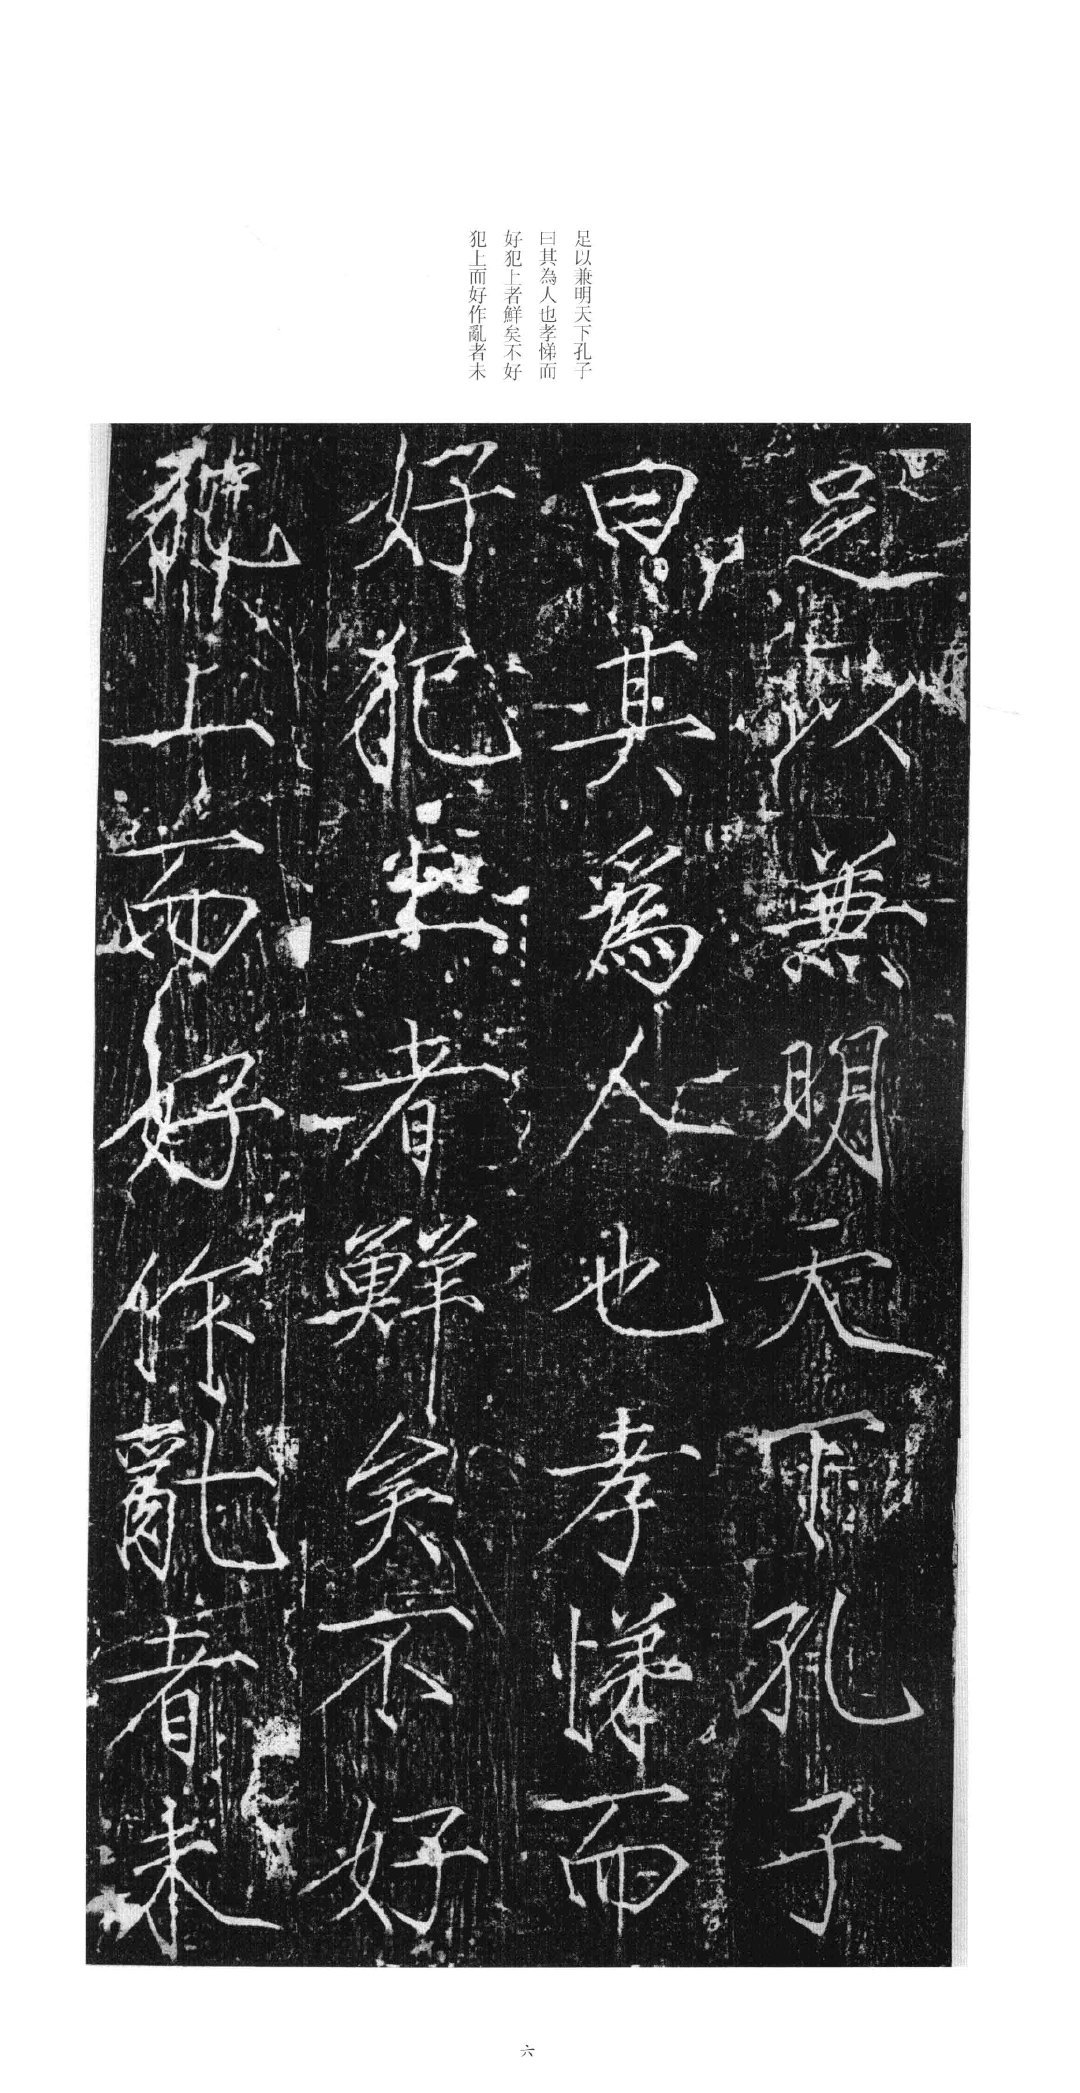 足以兼明天下孔子
曰其為人也孝悌而
好犯上者鮮矣不好
犯上而好作亂者未
足以兼明天下孔子
曰其為人也孝悌而
好犯上者鮮矣不好
犯上而好作亂者未
六